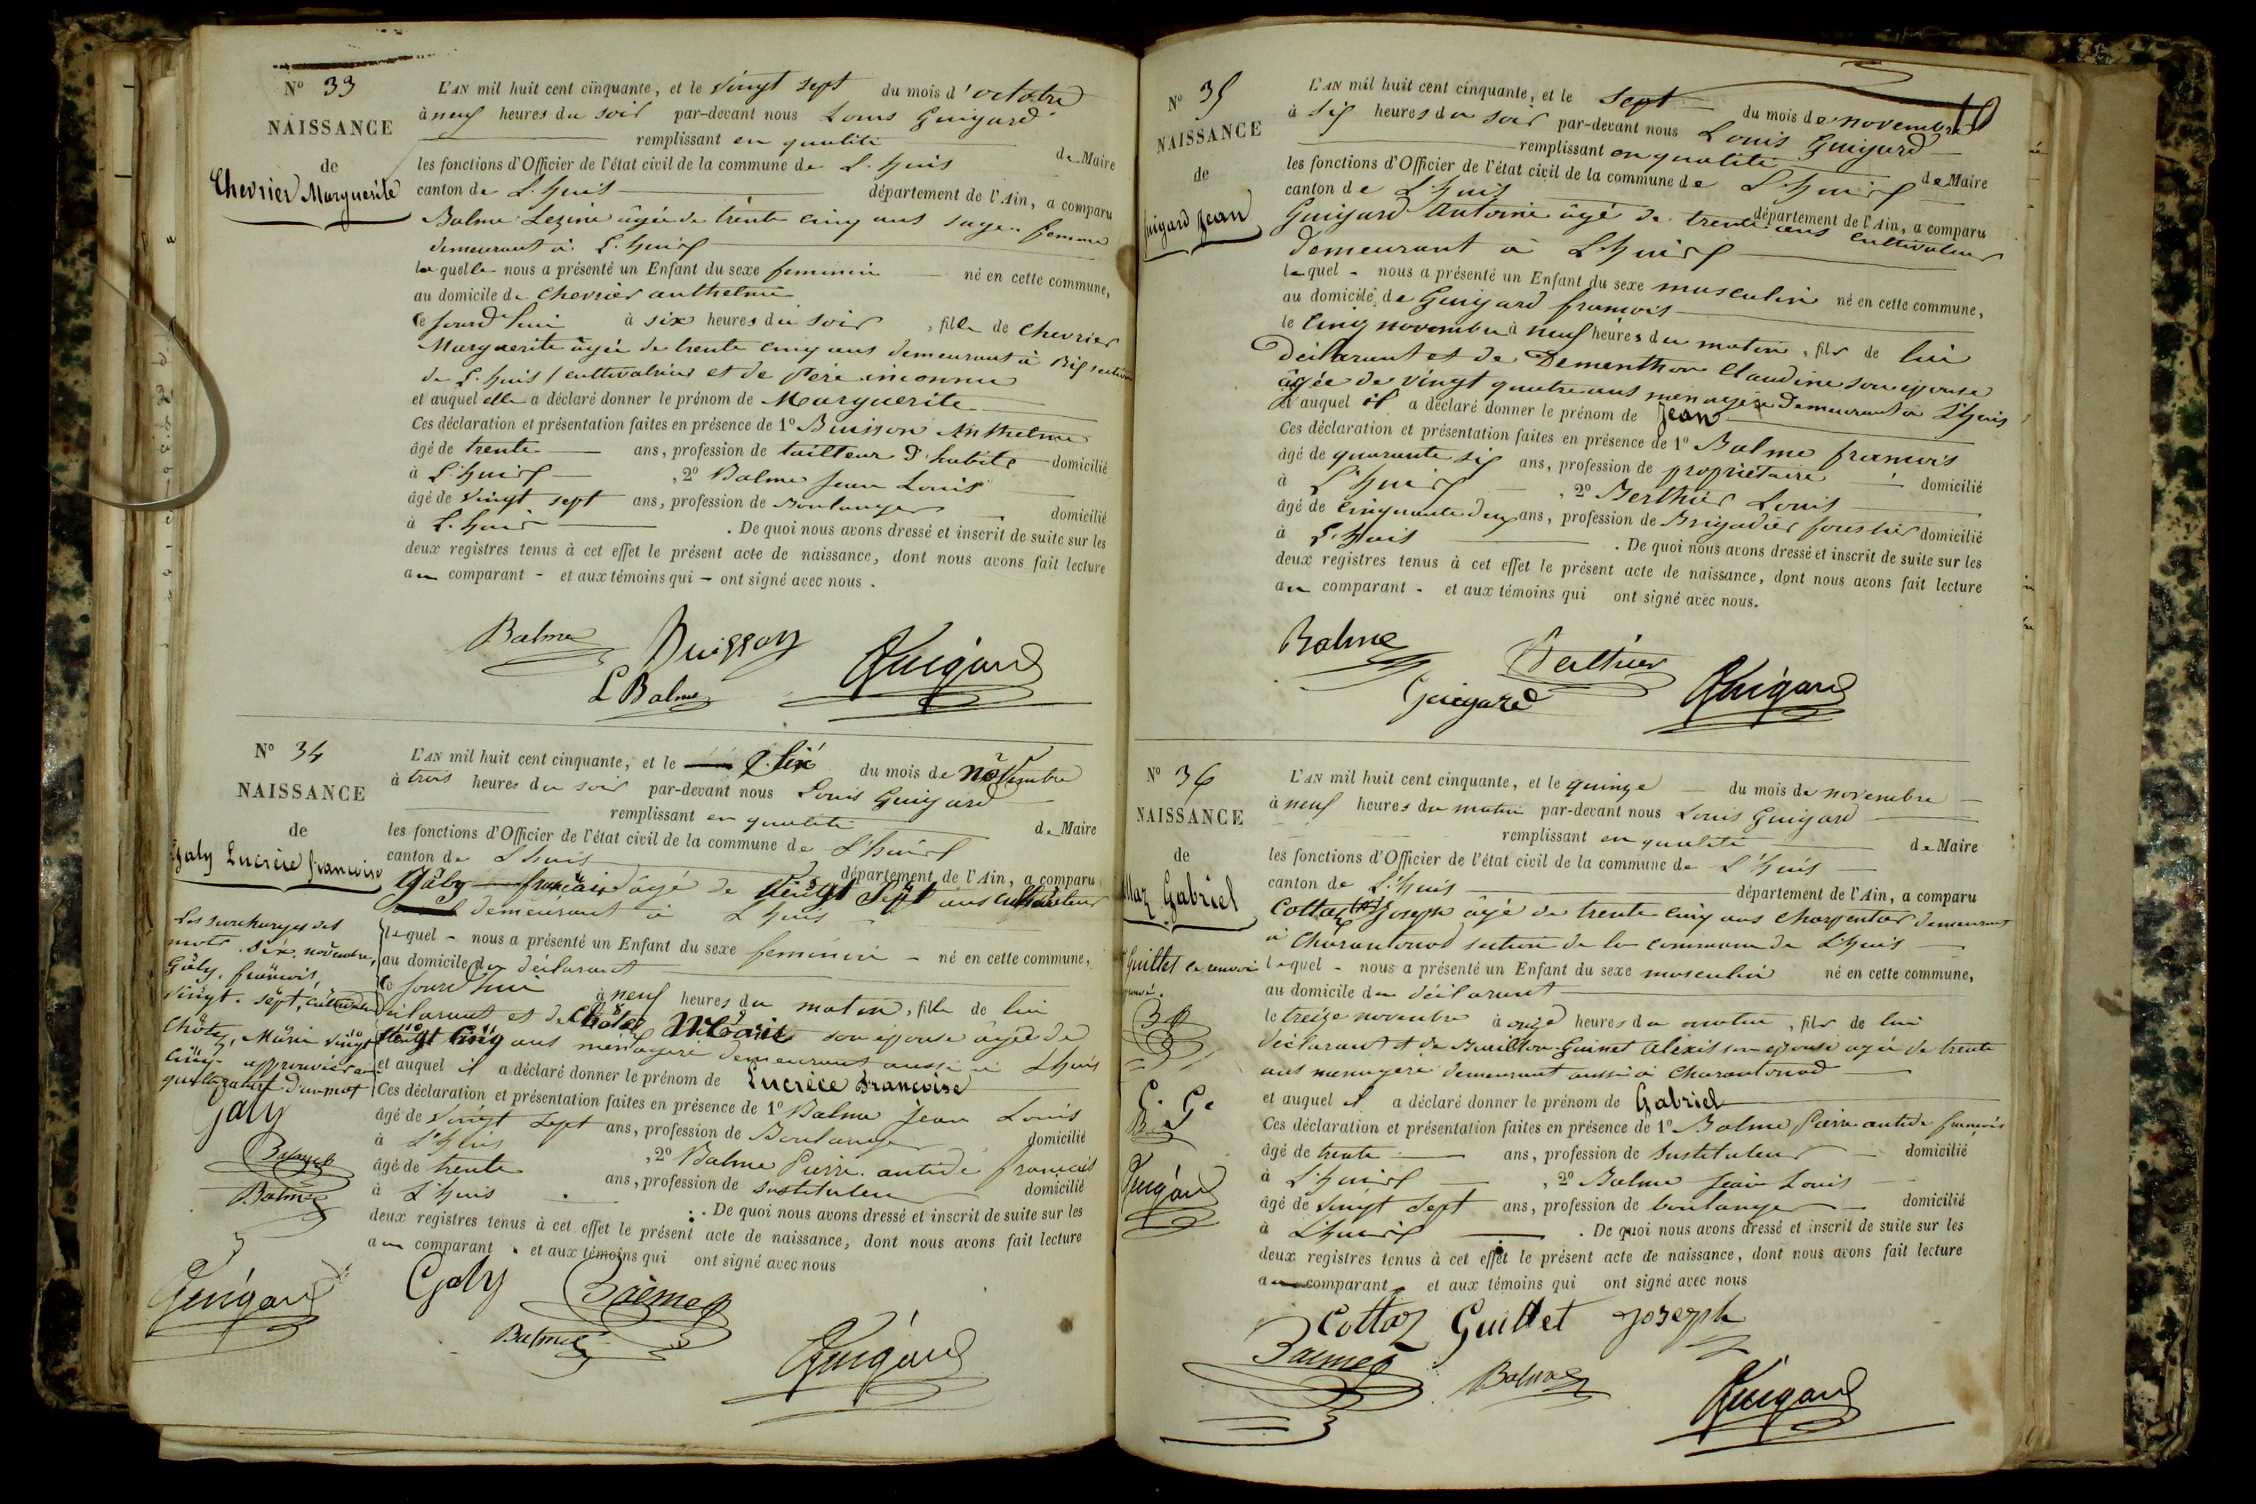 N° 33
NAISSANCE
de
Chevrier Marguerite
L'AN mil huit cent cinquante, et le vingt sept du mois d'octobre
à neuf heures du soir par-devant nous Louis Guigard
remplissant en qualité de Maire
les fonctions d'Officier de l'état civil de la commune de L'huis
canton de L'huis département de l'Ain, a comparu
Balme Lezine âgée de trente cinq ans sage-femme
demeurant à L'huis
laquelle nous a présenté un Enfant du sexe feminin né en cette commune,
au domicile de Chevrier anthelme
ce jourd'hui à six heures du soir, fille de Chevrier
Marguerite âgée de trente cinq ans demeurant à section
de L'huis cultivatrice et de père inconnu
et auquel elle a déclaré donner le prénom de Marguerite
Ces déclaration et présentation faites en présence de 1° Buisson Anthelme
âgé de trente ans, profession de tailleur d'habits domicilié
à L'huis, 2° Balme Jean Louis
âgé de vingt sept ans, profession de Boulanger domicilié
à L'huis. De quoi nous avons dressé et inscrit de suite sur les
deux registres tenus à cet effet le présent acte de naissance, dont nous avons fait lecture
au comparant - et aux témoins qui - ont signé avec nous.
Balme Buisson
L Balme Guigard
N° 34
NAISSANCE
de
Galy Lucrèce francoise
Les surcharges des
mots. six, novembre,
Galy, françois,
vingt. sept, cultivateur
Marie vingt
cinq. approuvées
d'un mot
Galy
Balme
Balme
Guigard
L'AN mil huit cent cinquante, et le six du mois de novembre
à trois heures du soir par-devant nous Louis Guigard
remplissant en qualité de Maire
les fonctions d'Officier de l'état civil de la commune de L'huis
canton de L'huis département de l'Ain, a comparu
Galy françois âgé de vingt sept ans cultivateur
demeurant à L'huis
lequel - nous a présenté un Enfant du sexe feminin - né en cette commune,
au domicile du déclarant
ce jourd'hui à neuf heures du matin, fille de lui
déclarant et de Marie son épouse âgée de
vingt cinq ans menagère demeurant aussi à L'huis
et auquel il a déclaré donner le prénom de Lucrèce francoise
Ces déclaration et présentation faites en présence de 1° Balme Jean Louis
âgé de vingt sept ans, profession de Boulanger domicilié
à L'huis, 2° Balme Pierre antide francois
âgé de trente ans, profession de instituteur domicilié
à L'huis. De quoi nous avons dressé et inscrit de suite sur les
deux registres tenus à cet effet le présent acte de naissance, dont nous avons fait lecture
au comparant. et aux témoins qui ont signé avec nous
Galy Balme
Balme Guigard
N° 35
NAISSANCE
de
Guigard Jean
L'AN mil huit cent cinquante, et le sept du mois de novembre
à six heures du soir par-devant nous Louis Guigard
remplissant en qualité de Maire
les fonctions d'Officier de l'état civil de la commune de L'huis
canton de L'huis département de l'Ain, a comparu
Guigard Antoine âgé de trente ans cultivateur
demeurant à L'huis
lequel - nous a présenté un Enfant du sexe masculin né en cette commune,
au domicile de Guigard francois
le cinq novembre à neuf heures du matin, fils de lui
déclarant et de Dementhon Claudine son épouse
âgée de vingt quatre ans menagère demeurant à L'huis
et auquel il a déclaré donner le prénom de Jean
Ces déclaration et présentation faites en présence de 1° Balme francois
âgé de quarante six ans, profession de propriétaire domicilié
à L'huis, 2° Berthier Louis
âgé de cinquante deux ans, profession de Brigadier domicilié
à L'huis. De quoi nous avons dressé et inscrit de suite sur les
deux registres tenus à cet effet le présent acte de naissance, dont nous avons fait lecture
au comparant - et aux témoins qui ont signé avec nous.
Balme Berthier
Guigard Guigard
N° 36
NAISSANCE
de
Gabriel
Guillet ce renvoi
C. G.
B.
Guigard
L'AN mil huit cent cinquante, et le quinze du mois de novembre
à neuf heures du matin par-devant nous Louis Guigard
remplissant en qualité de Maire
les fonctions d'Officier de l'état civil de la commune de L'huis
canton de L'huis département de l'Ain, a comparu
Cottaz Joseph âgé de trente cinq ans charpentier demeurant
à Charantonod section de la commune de L'huis
lequel - nous a présenté un Enfant du sexe masculin né en cette commune,
au domicile du déclarant
le treize novembre à onze heures du matin, fils de lui
déclarant et de Guinet Alexis son épouse agée de trente
ans menagère demeurant aussi à Charantonod
et auquel il a déclaré donner le prénom de Gabriel
Ces déclaration et présentation faites en présence de 1° Balme Pierre antide francois
âgé de trente ans, profession de instituteur domicilié
à L'huis, 2° Balme Jean Louis
âgé de vingt sept ans, profession de boulanger domicilié
à L'huis. De quoi nous avons dressé et inscrit de suite sur les
deux registres tenus à cet effet le présent acte de naissance, dont nous avons fait lecture
au comparant et aux témoins qui ont signé avec nous
Cottaz Guillet Joseph
Balme Balme
Guigard